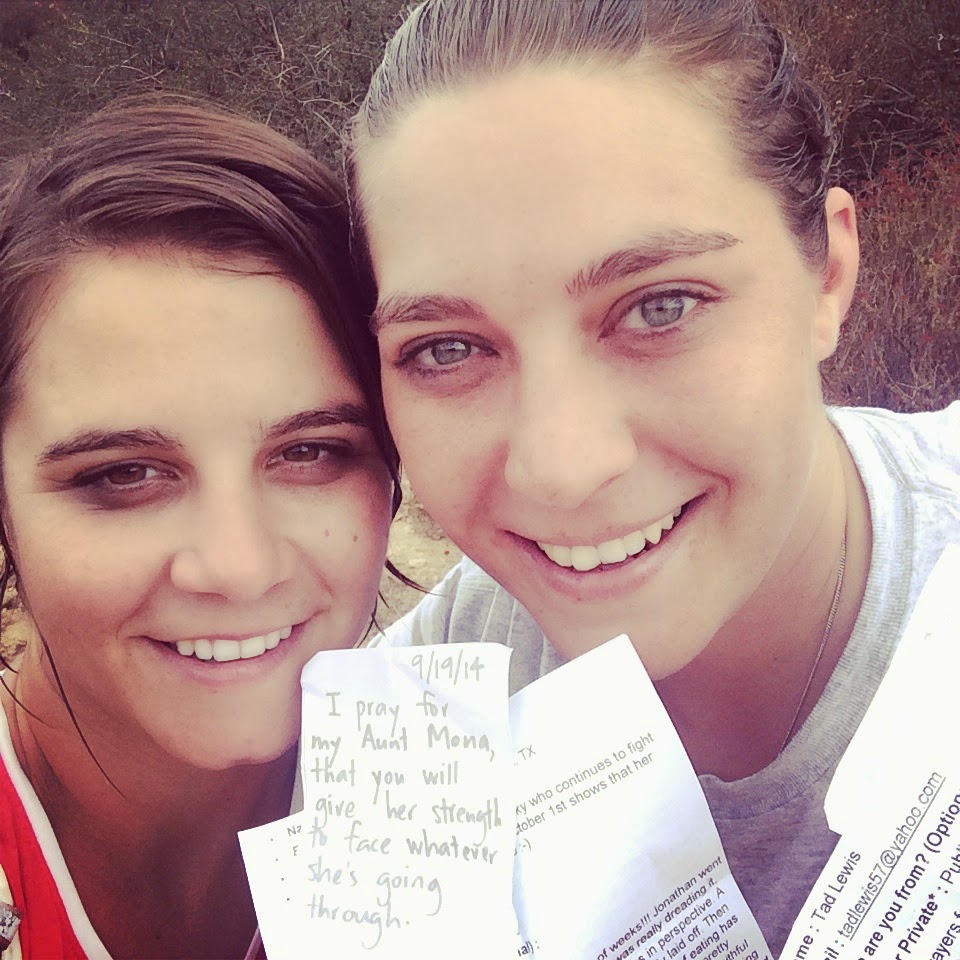 9/19/14
I pray for
my Aunt Mona,
that you will
give her strength
to face whatever
she's going
through.
, TX
ky who continues to fight
tober 1st shows that her
:-)
of weeks!!! Jonathan went
was really dreading it.
s in perspective. A
laid off. Then
of eating has
pretty
thful
al) :
me : Tad Lewis
ail : tadlewis57@yahoo.com
e are you from? (Option
r Private* : Publ
ayers f